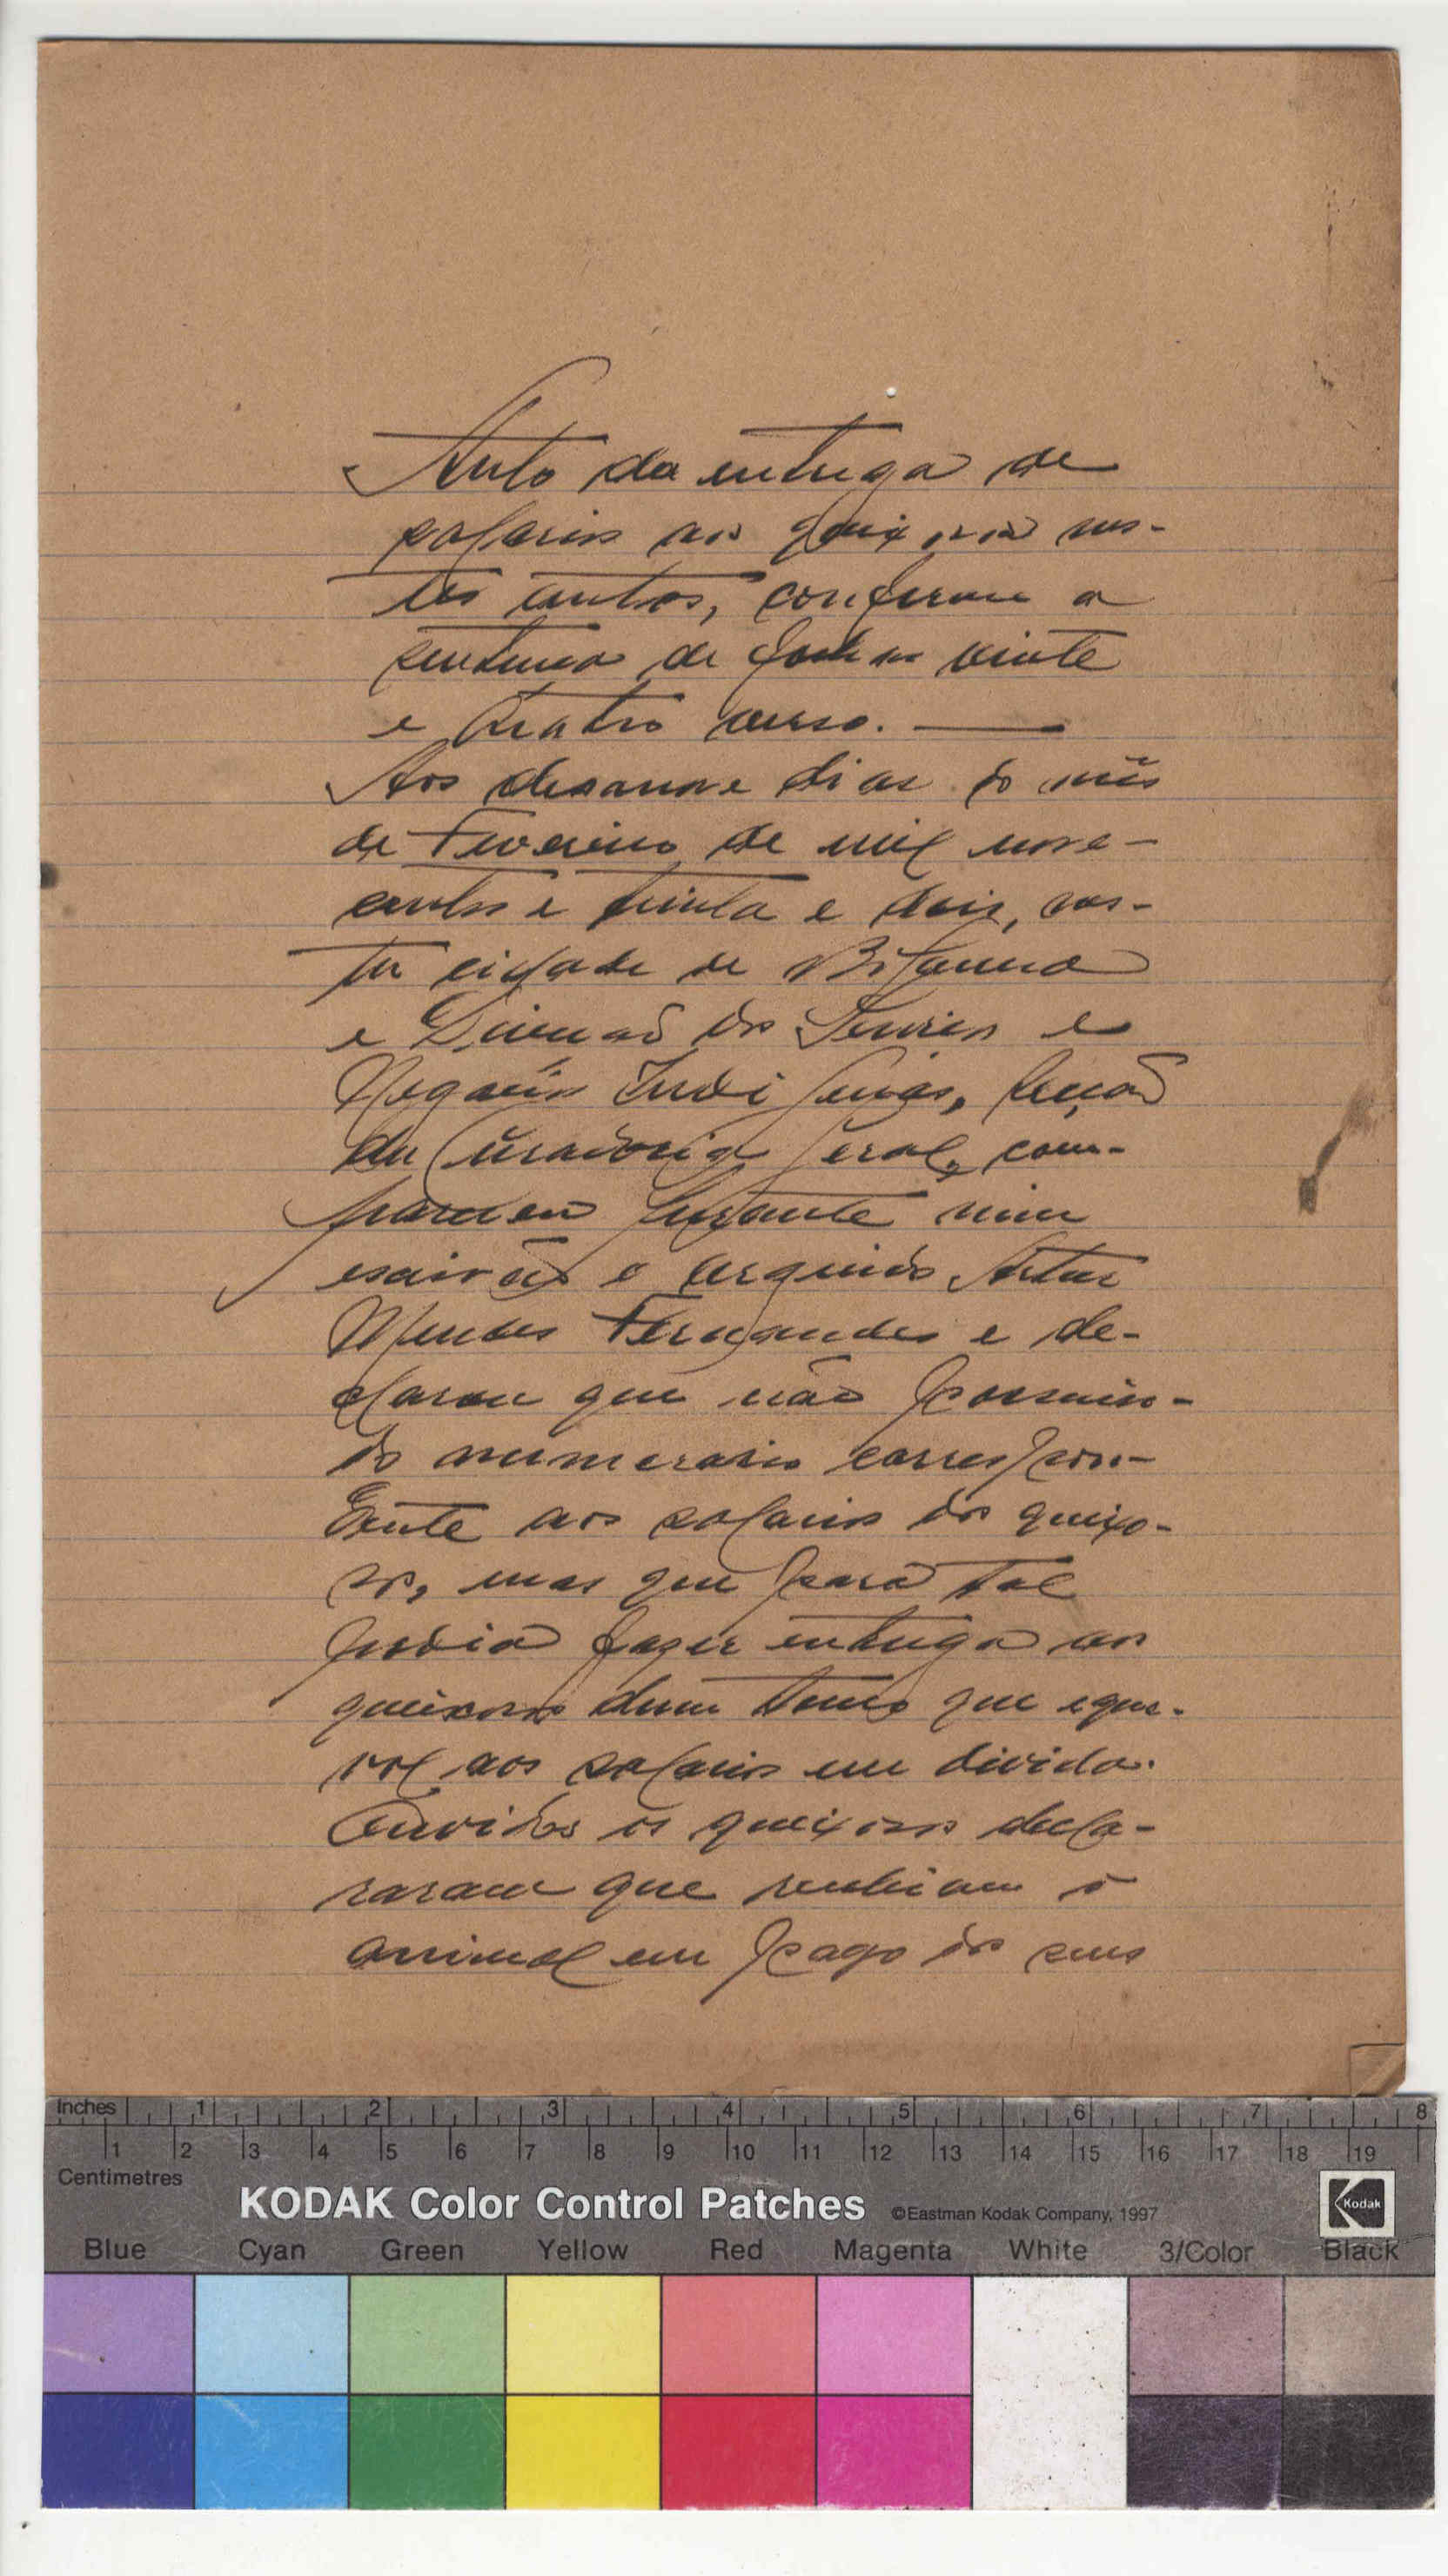 Auto da entrega de
salarios aos queixosos nes-
tes autos, conforme a
sentença de folhas vinte
e quatro verso.
Aos desanove dias do mês
de Fevereiro de mil nove-
centos e trinta e dois, nes-
ta cidade de Bolama
e Direcção dos Serviços e
Negocios Indigenas, Secção
da Curadoria Geral, com-
pareceu perante mim
escrivão o arguido Artur
Mendes Fernandes e de-
clarou que não possuin-
do numerario correspon-
dente aos salarios dos queixo-
sos, mas que para tal
podia fazer entrega aos
queixosos dum touro que equi-
val aos salarios em divida.
Ouvidos os queixosos decla-
raram que recebiam o
animal em pago dos seus
Inches 1 2 3 4 5 6 7 8
1 2 3 4 5 6 7 8 9 10 11 12 13 14 15 16 17 18 19
Centimetres
KODAK Color Control Patches ©Eastman Kodak Company, 1997 Kodak
Blue Cyan Green Yellow Red Magenta White 3/Color Black